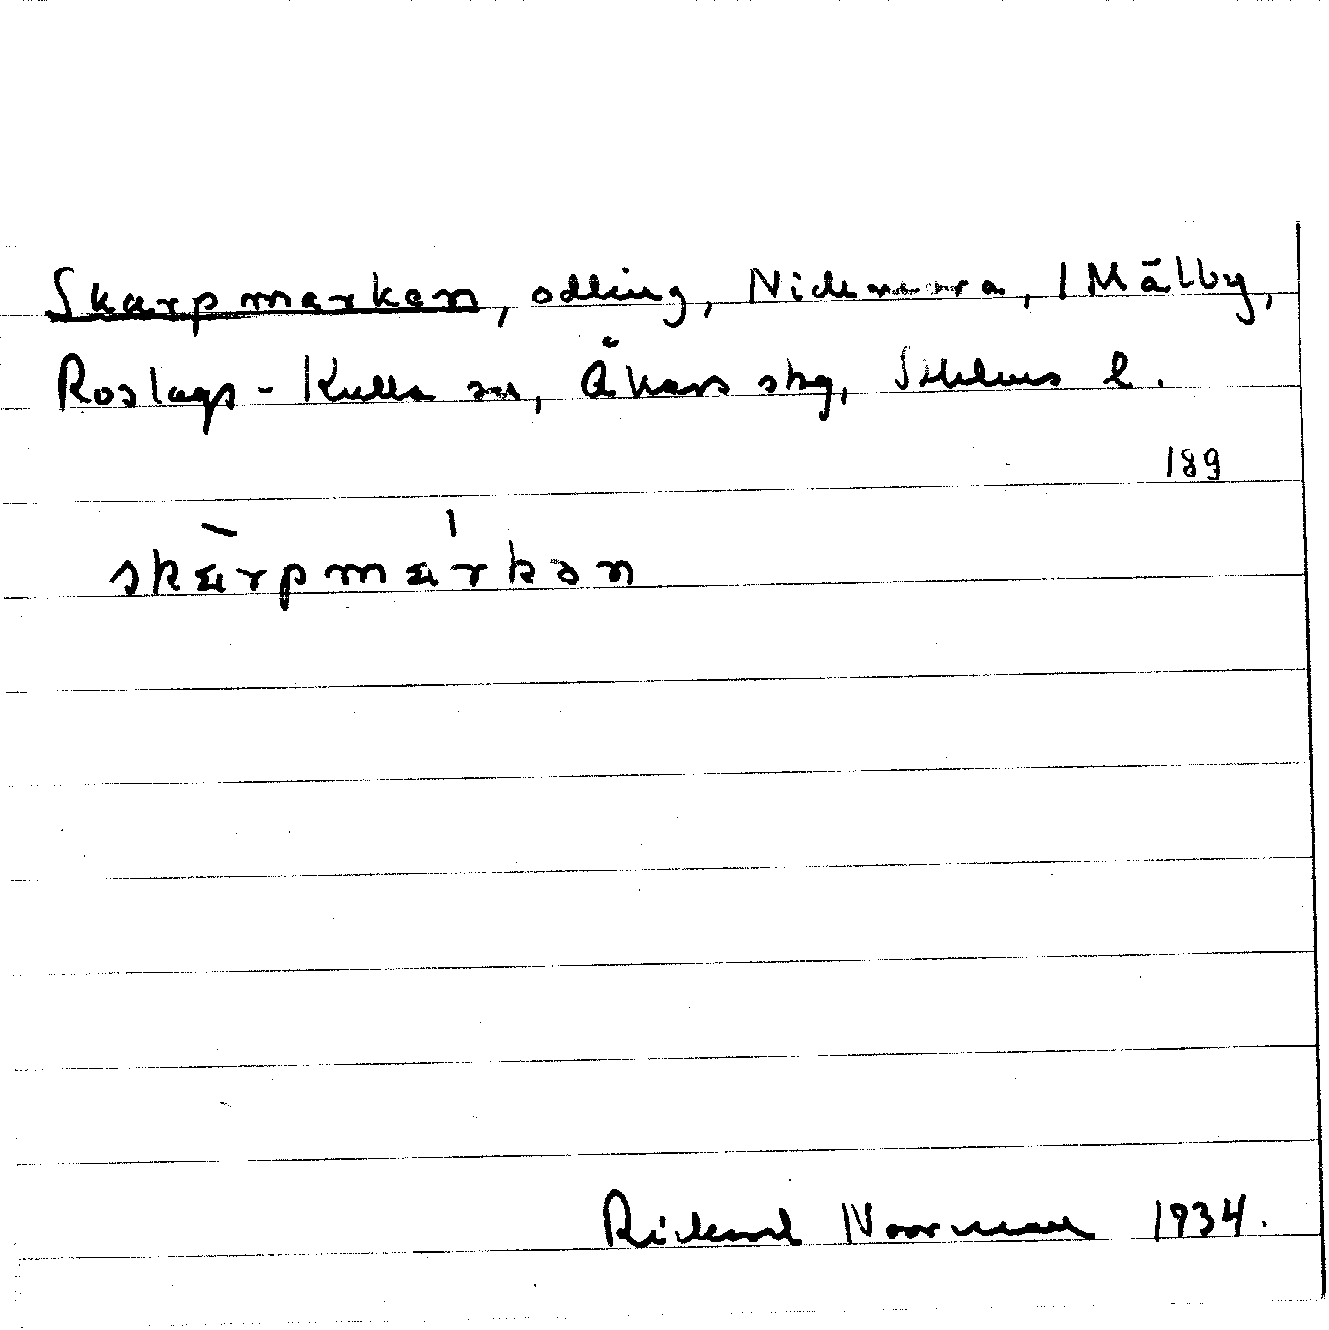 Skarpmarken, odling, 1 Mälby,
Roslags-Kulla sn, Åkers skg, Sthlms l.
189
skàrpmárkən
Rickard Noorman 1934.